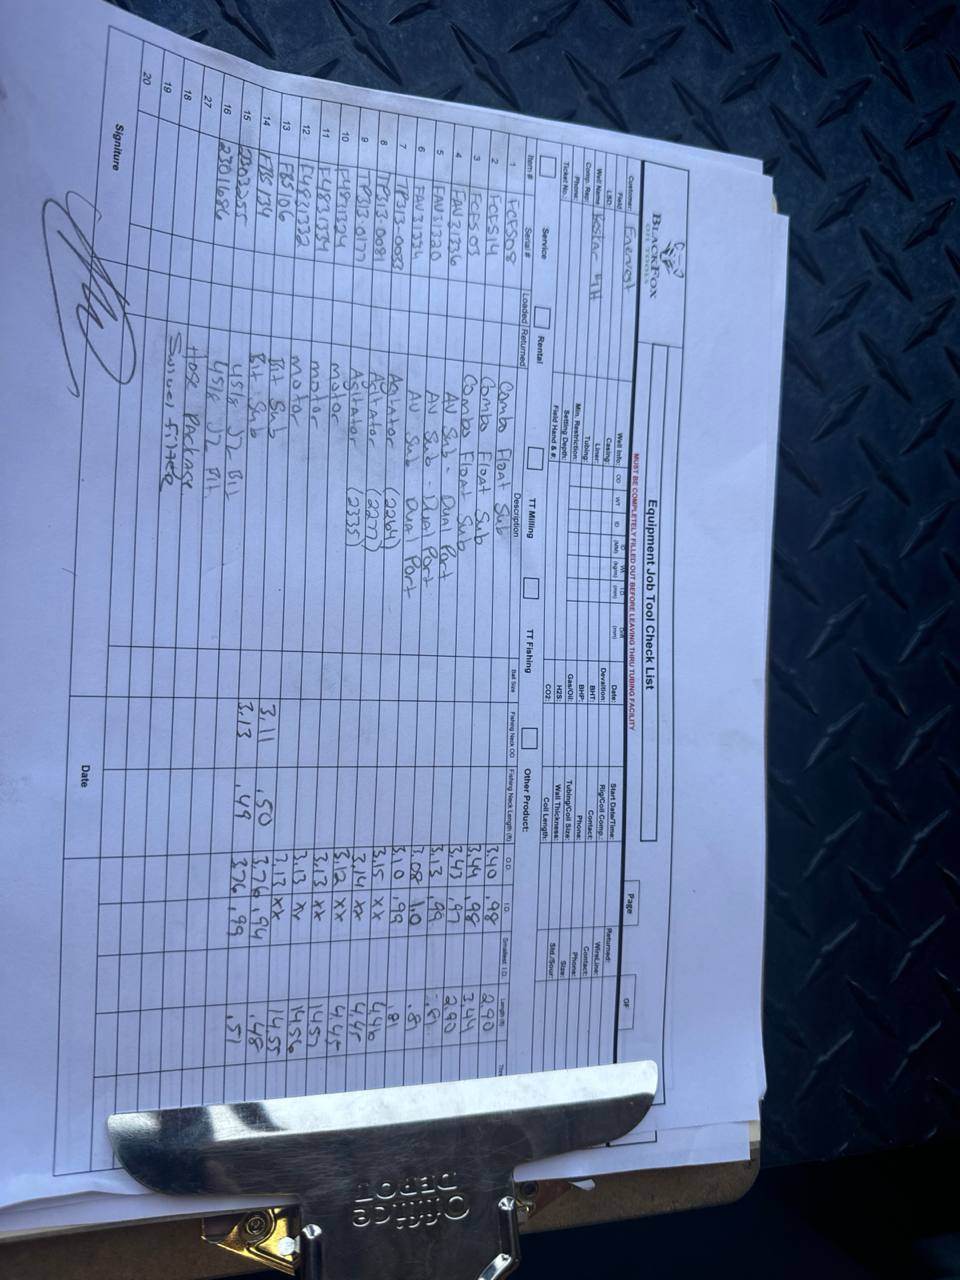 BLACKFOX
OIL TOOLS
Equipment Job Tool Check List
Page OF
MUST BE COMPLETELY FILLED OUT BEFORE LEAVING THRU TUBING FACILITY
Customer: Enervest
Field
LSD:
Well Name
Comp. Rep:
Phone:
Ticket No.
Well Info: OD WT ID OD WT ID Drift
(MM) (kg/m) (mm) (mm)
Casing:
Liner:
Tubing:
Min. Restriction:
Setting Depth:
Field Hand & #:
Date:
Deviation:
BHT:
BHP:
Gas/Oil:
H2S:
CO2:
Start Date/Time:
Rig/Coil Comp.:
Contact:
Phone:
Tubing/Coil Size:
Wall Thickness:
Coil Length:
Returned:
WireLine:
Contact:
Phone:
Size:
Std./Sour:
Service Rental TT Milling TT Fishing Other Product:
Item # Serial # Loaded Returned Description Ball Size Fishing Neck OD Fishing Neck Length (ft) O.D. I.D. Smallest I.D. Length (ft)
1 FCFS08 Combo Float Sub 3.40 .98 2.90
2 FCFS14 Combo Float Sub 3.44 .98 3.44
3 FCFS03 Combo Float Sub 3.43 .97 2.90
4 FAV31336 AV Sub - Dual Port 3.13 .99 .81
5 FAV31320 AV Sub - Dual Port 3.08 1.0 .81
6 FAV31334 AV Sub Dual Port 3.10 .99 .81
7 TP313-0033 Agitator (2264) 3.15 xx 4.46
8 TP313-0081 Agitator (2277) 3.14 xx 4.45
9 TP313-0177 Agitator (2335) 3.12 xx 4.45
10 F4831324 motor 3.13 xx 14.57
11 F4831334 motor 3.13 xx 14.56
12 F4831332 motor 3.13 xx 14.55
13 FBS106 Bit Sub 3.11 .50 3.76 .94 .48
14 FBS134 Bit Sub 3.13 .49 3.76 .99 .51
15 2303255 4 5/8 JZ Bit
16 2301686 4 5/8 JZ Bit
27 Hose Package
18 Swivel
19
20
Signiture
Date
Office
DEPOT